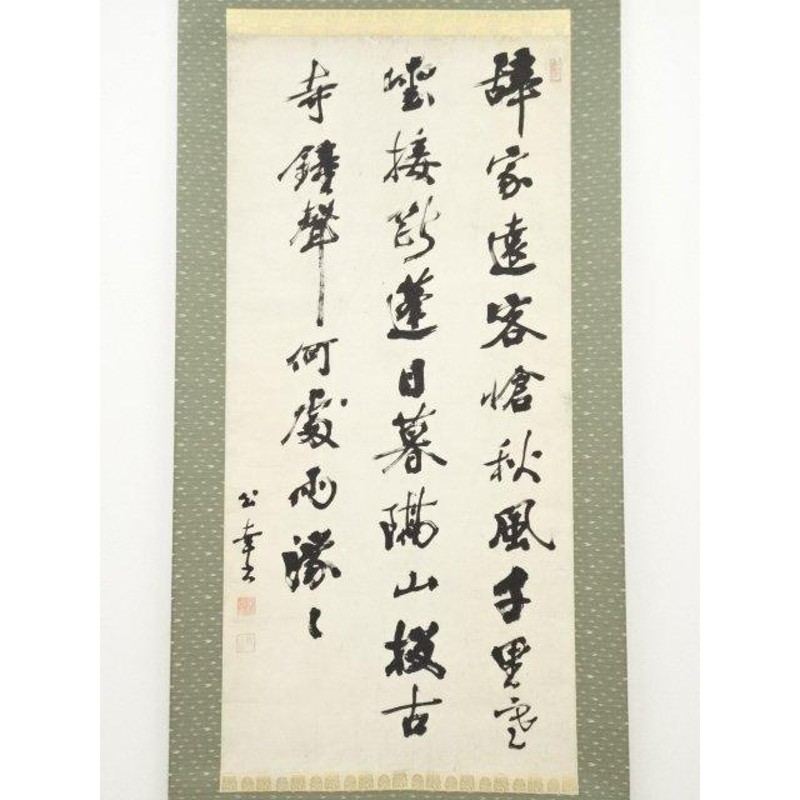 辭家遠客愴秋風千里寒
雲接斷蓬日暮隔山投古
寺鐘聲何處雨濛々